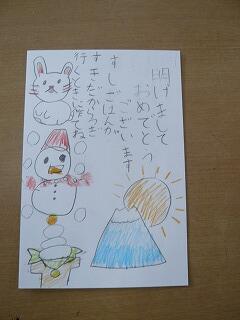 明けまして
おめでとう
ございます
すしごはんが
すきだからつぎ
行くときに作てね